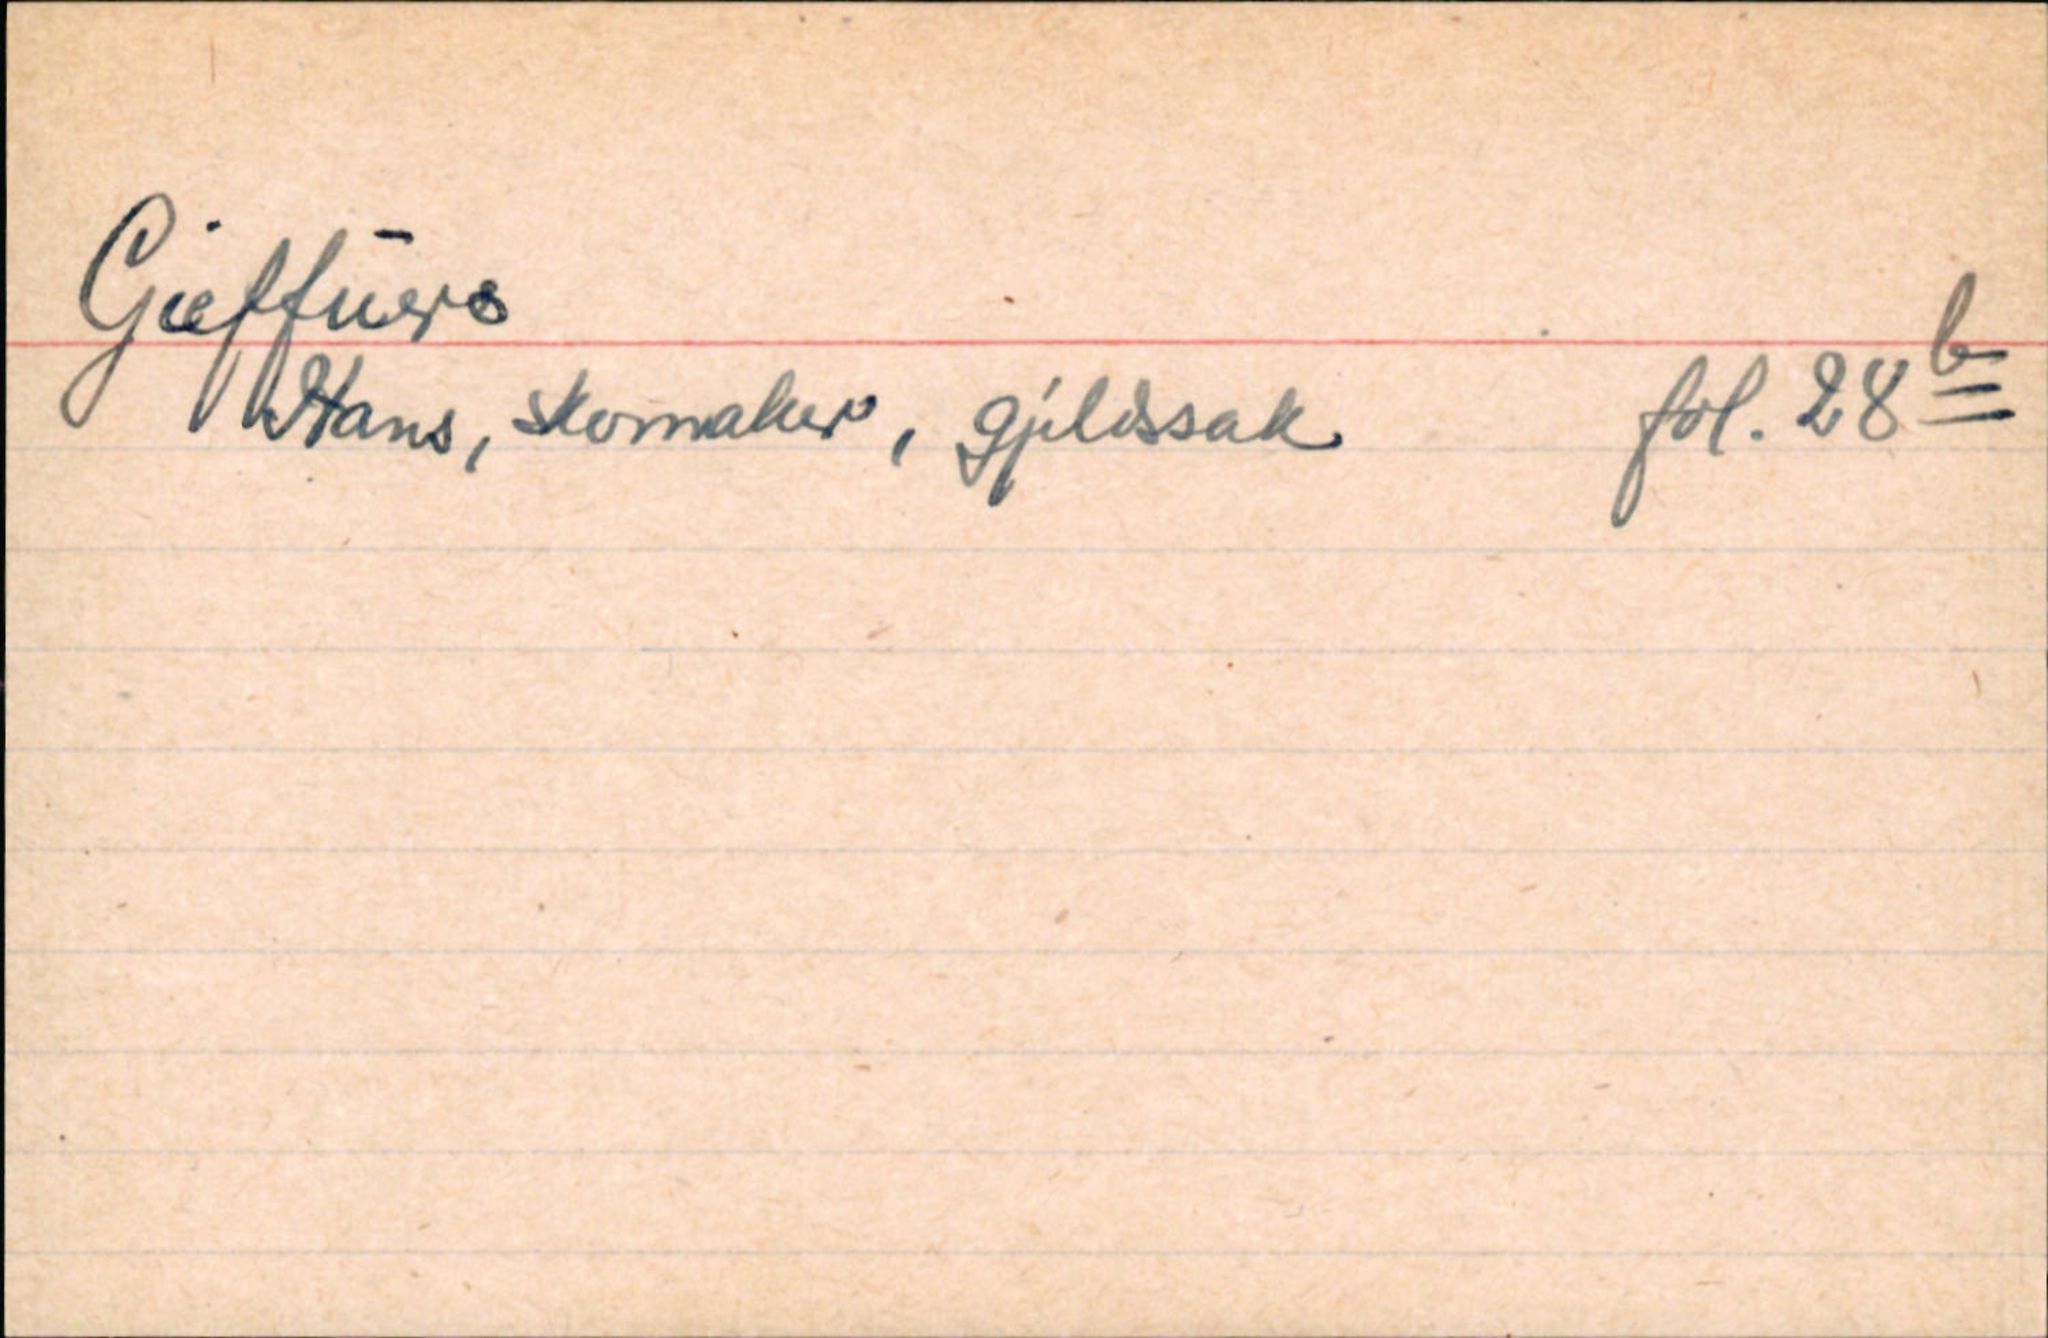 Gieffūers
Hans, skomaker, gjeldssak fol. 28 b